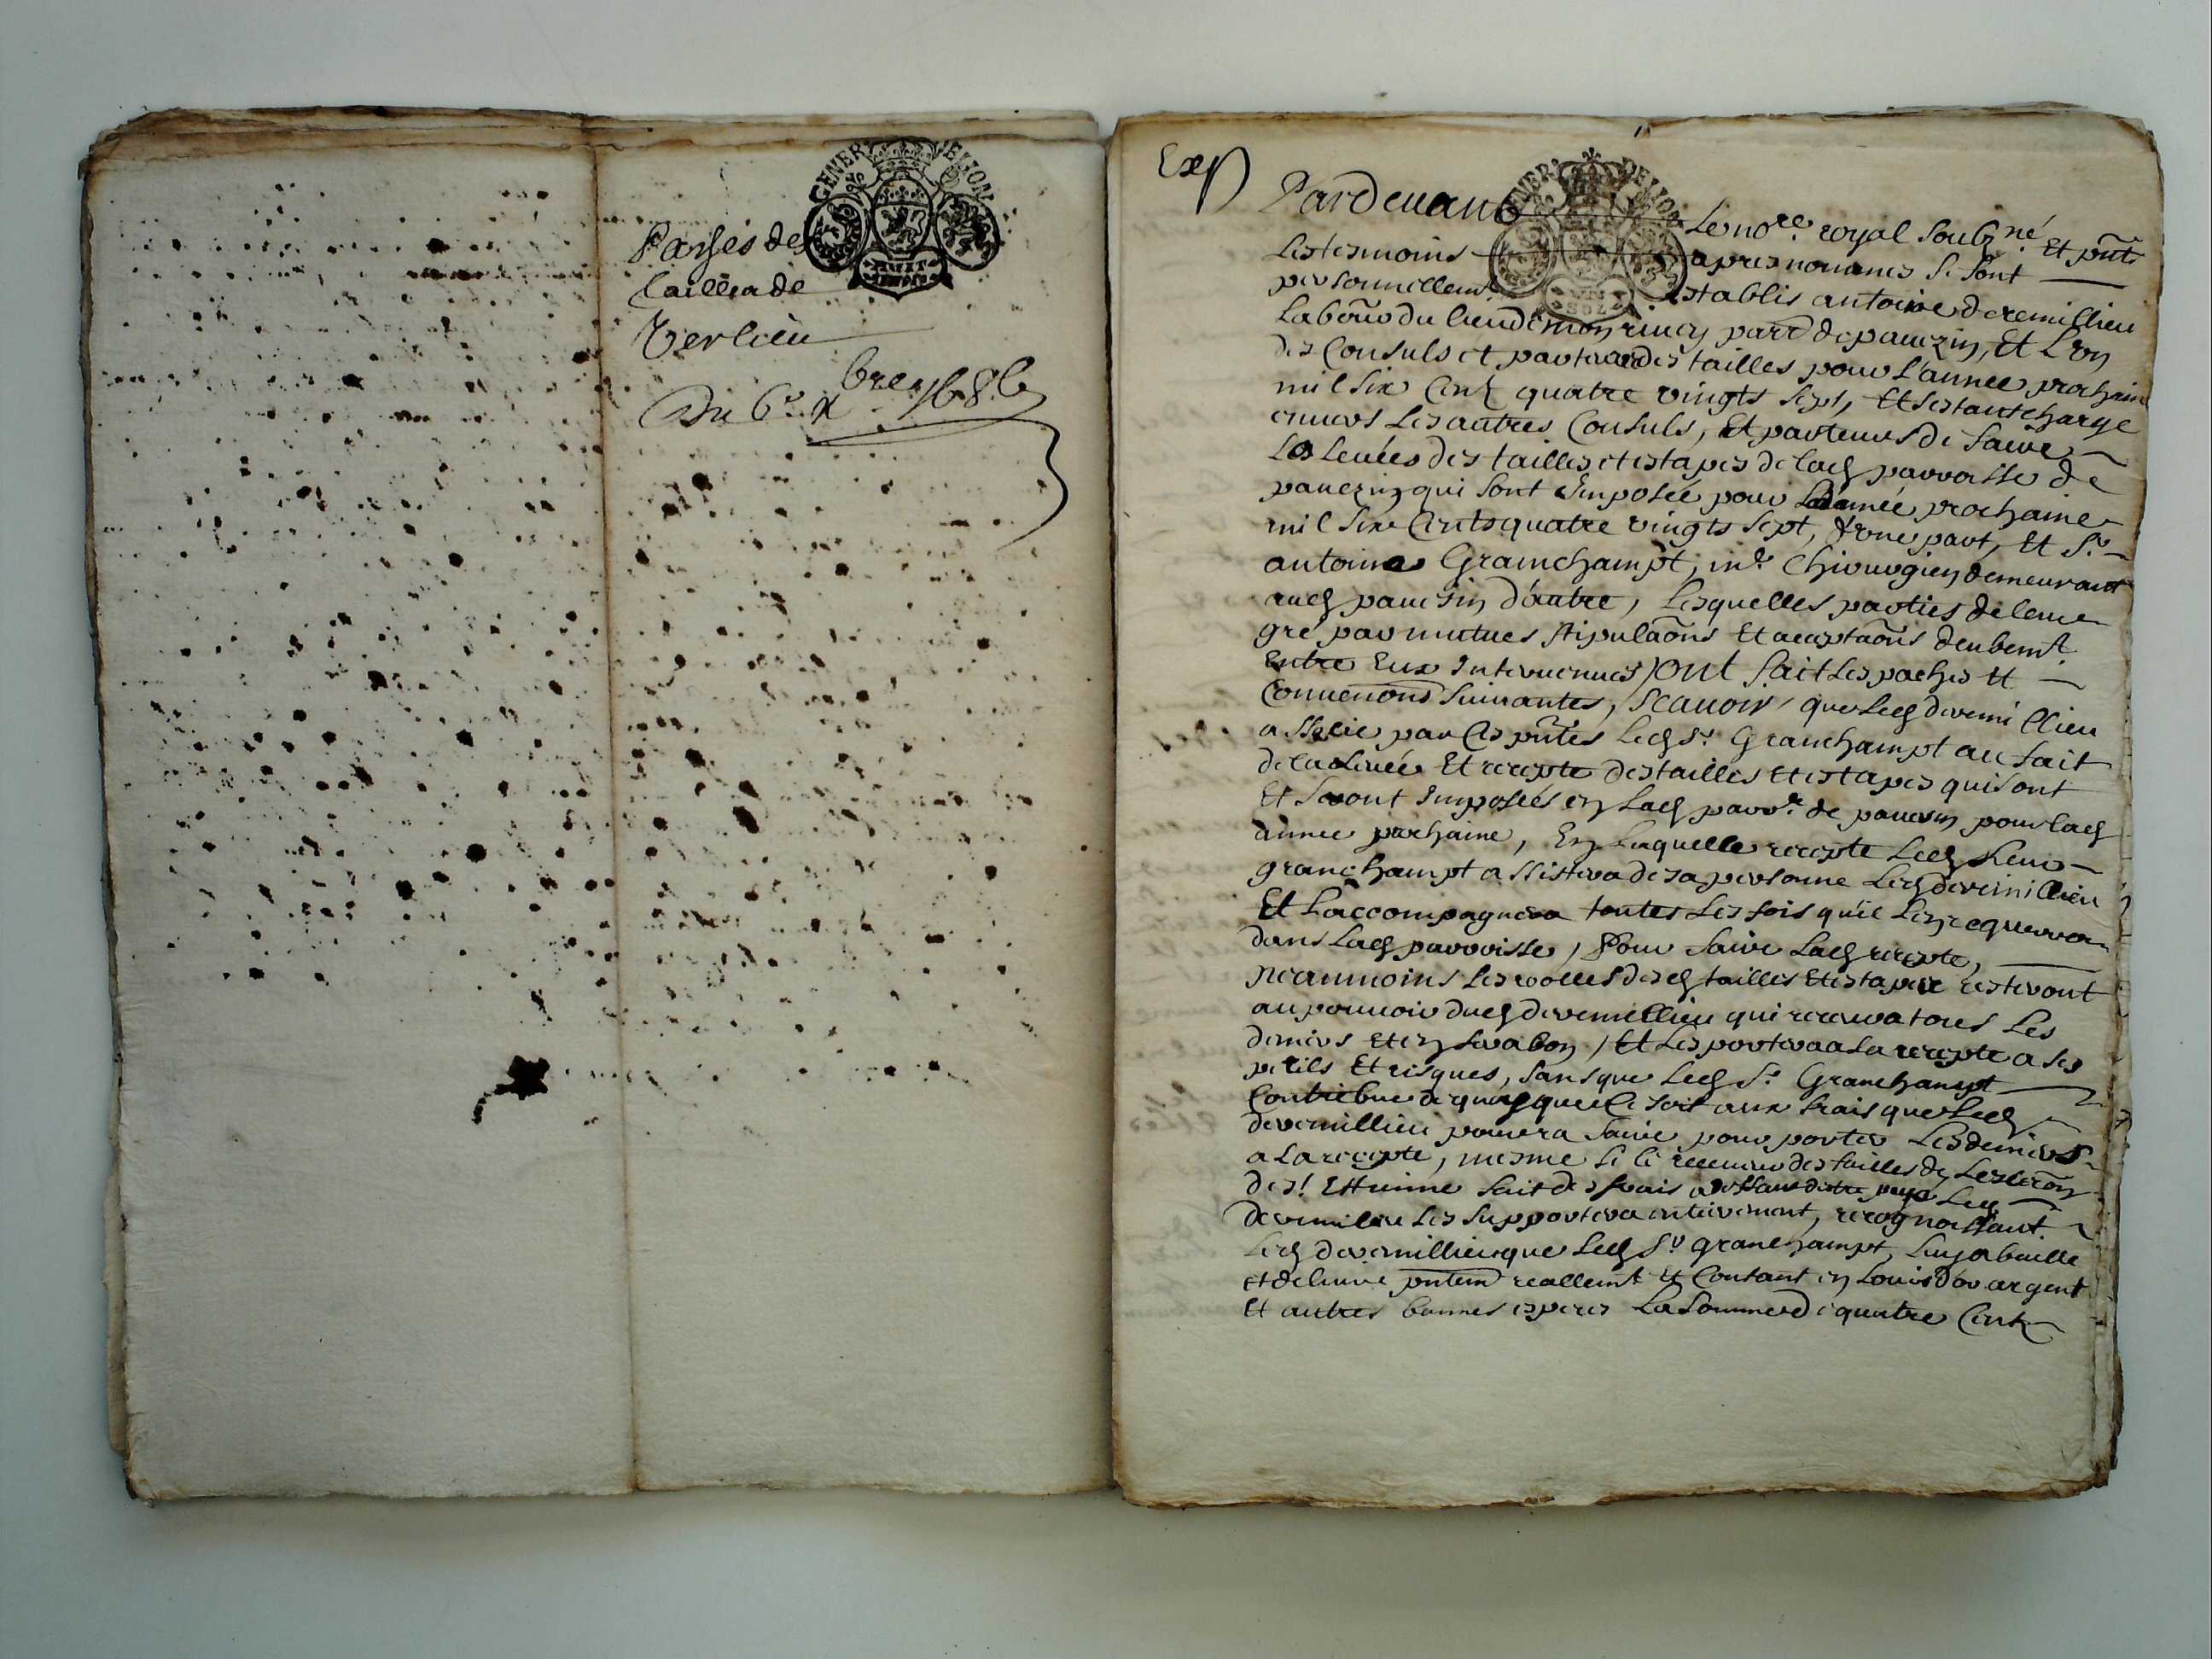 GENER DE LYON
Parsés de
Tailles de
Verlieu
Du 6e xbre 1686
Exp
GENER DE LYON
VN
SOLZ
Pardeuant Le nore. royal soubzné. Et pñts
Les tesmoins apres nommes se sont
personnellemt. establis antoine deremillieu
labour du lieu de parr de pauezin, Et L'vn
des Consuls et parteurs des tailles pour l'annee prochain
mil six Cent quatre vingts sept, Et s'estant charge
enuers Les autres Consuls, Et parteurs de faire
La leuées des tailles et estapes de lad parroisse de
pauezin qui sont Imposée pour Lannée prochaine
mil six Cents quatre vingts sept, d'vne part, Et Sr
antoine Granchampt, me Chirurgien demeurant
aud pauezin d'autre, Lesquelles parties de leur
gré par mutues stipulaõns Et acceptaõns deubemt.
Entre Eux Interuenues, ont fait Les paches Et
Conuenõns suiuantes, scauoir, que Led deremillieu
a associé par Ces pñtes Led Sr Granchampt au fait
de la Leuée Et recepte des tailles et estapes qui sont
Et seront Imposées en Lad parre. de pauezin pour lad
année prochaine, En Laquelle recepte Led sieur
granchampt assistera de sa personne Led deremillieu
Et L'accompagnera toutes Les fois qu'il L'en requerrera
dans Lad parroisse, Pour faire Lad recepte,
Neanmoins Les roolles desd tailles Et estapes resteront
au pouuoir dud deremillieu qui receura tous Les
deniers Et en sera bon, Et Les portera a La recepte a ses
perils Et risques, sans que Led Sr. Granchampt
Contribue de quoy que Ce soit aux frais que Led
deremillieu pourra faire pour porter Les deniers
a La recepte, mesme si le receueur des tailles de Leslecõn
de St. Ettienne fait des frais a deffaut d'estre payé Led
deremillieu Les supportera entierement, recognoissant
Led deremillieu que Led Sr granchampt, Luy a baillé
et deliuré pñtemt reallemt Et Contant en Louis d'or argent
Et autres bonnes especes La somme de quatre Cent